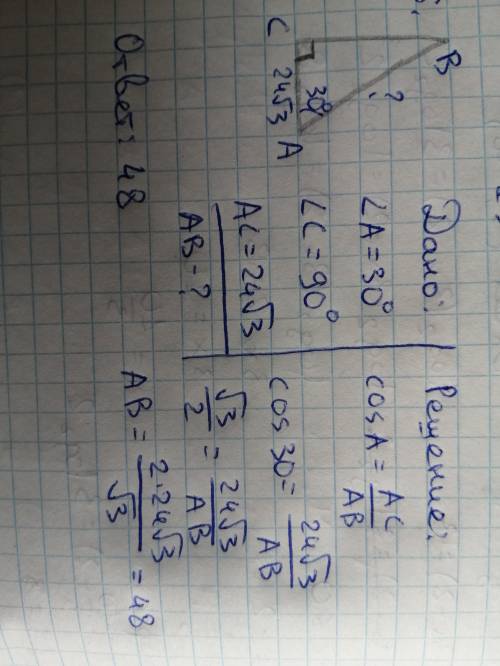 B
?
30°
C 24√3 A
Дано:
∠A = 30°
∠C = 90°
AC = 24√3
AB - ?
Решение:
cos A = AC / AB
cos 30 = 24√3 / AB
√3 / 2 = 24√3 / AB
AB = 2·24√3 / √3 = 48
Ответ: 48